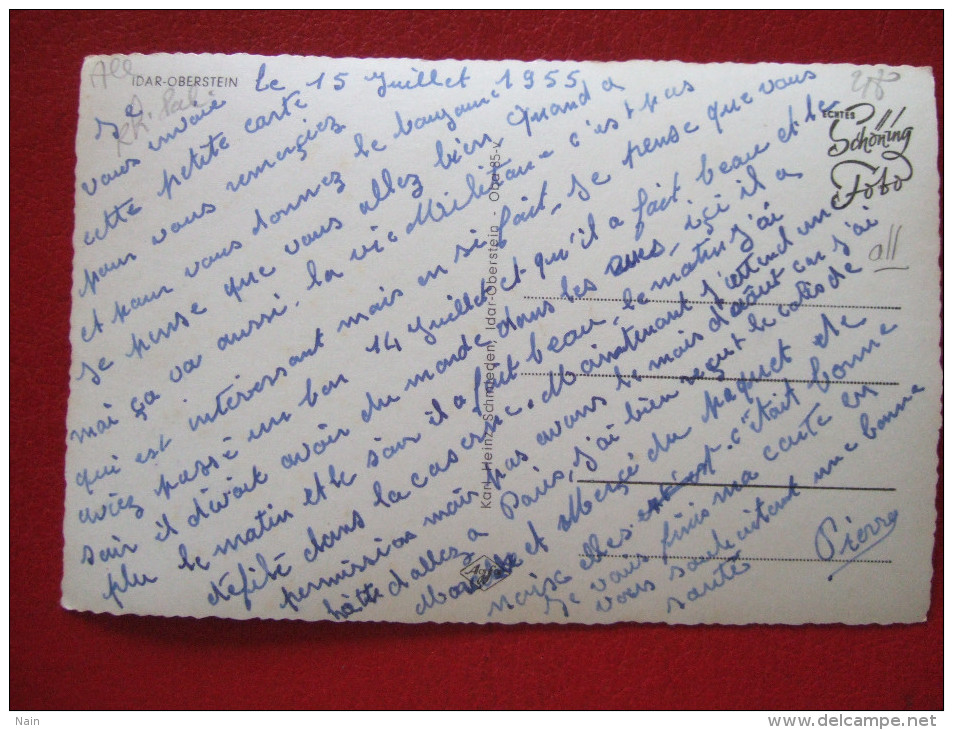 All
IDAR-OBERSTEIN
le 15 Juillet 1955
Je vous envoie
cette petite carte
pour vous remerciez
et pour vous donnez le bonjour
Je pense que vous allez bien quand a
moi ça va aussi. la vie Militaire c'est pas
qui est intéressant mais on si fait. Je pense que vous
aviez passé un bon 14 Juillet et qu'il a fait beau et le
soir il devait avoir du monde dans les rues, içi il a
plu le matin et le soir il a fait beau, le matin j'ai
défilé dans la caserne. Maintenant j'attend une
permission mais pas avant le mois d'août car j'ai
hâtte d'allez a Paris, j'ai bien reçut le colis de
et Merçi du paquet de
elles c'était bonne
Je vous finis ma carte en
vous souhaitant une bonne
santé
Pierre
ECHTES
Schöning
Foto
all
Karl-Heinz Schmieden, Idar-Oberstein - Obe 85-V
Agfa
Nain
www.delcampe.net